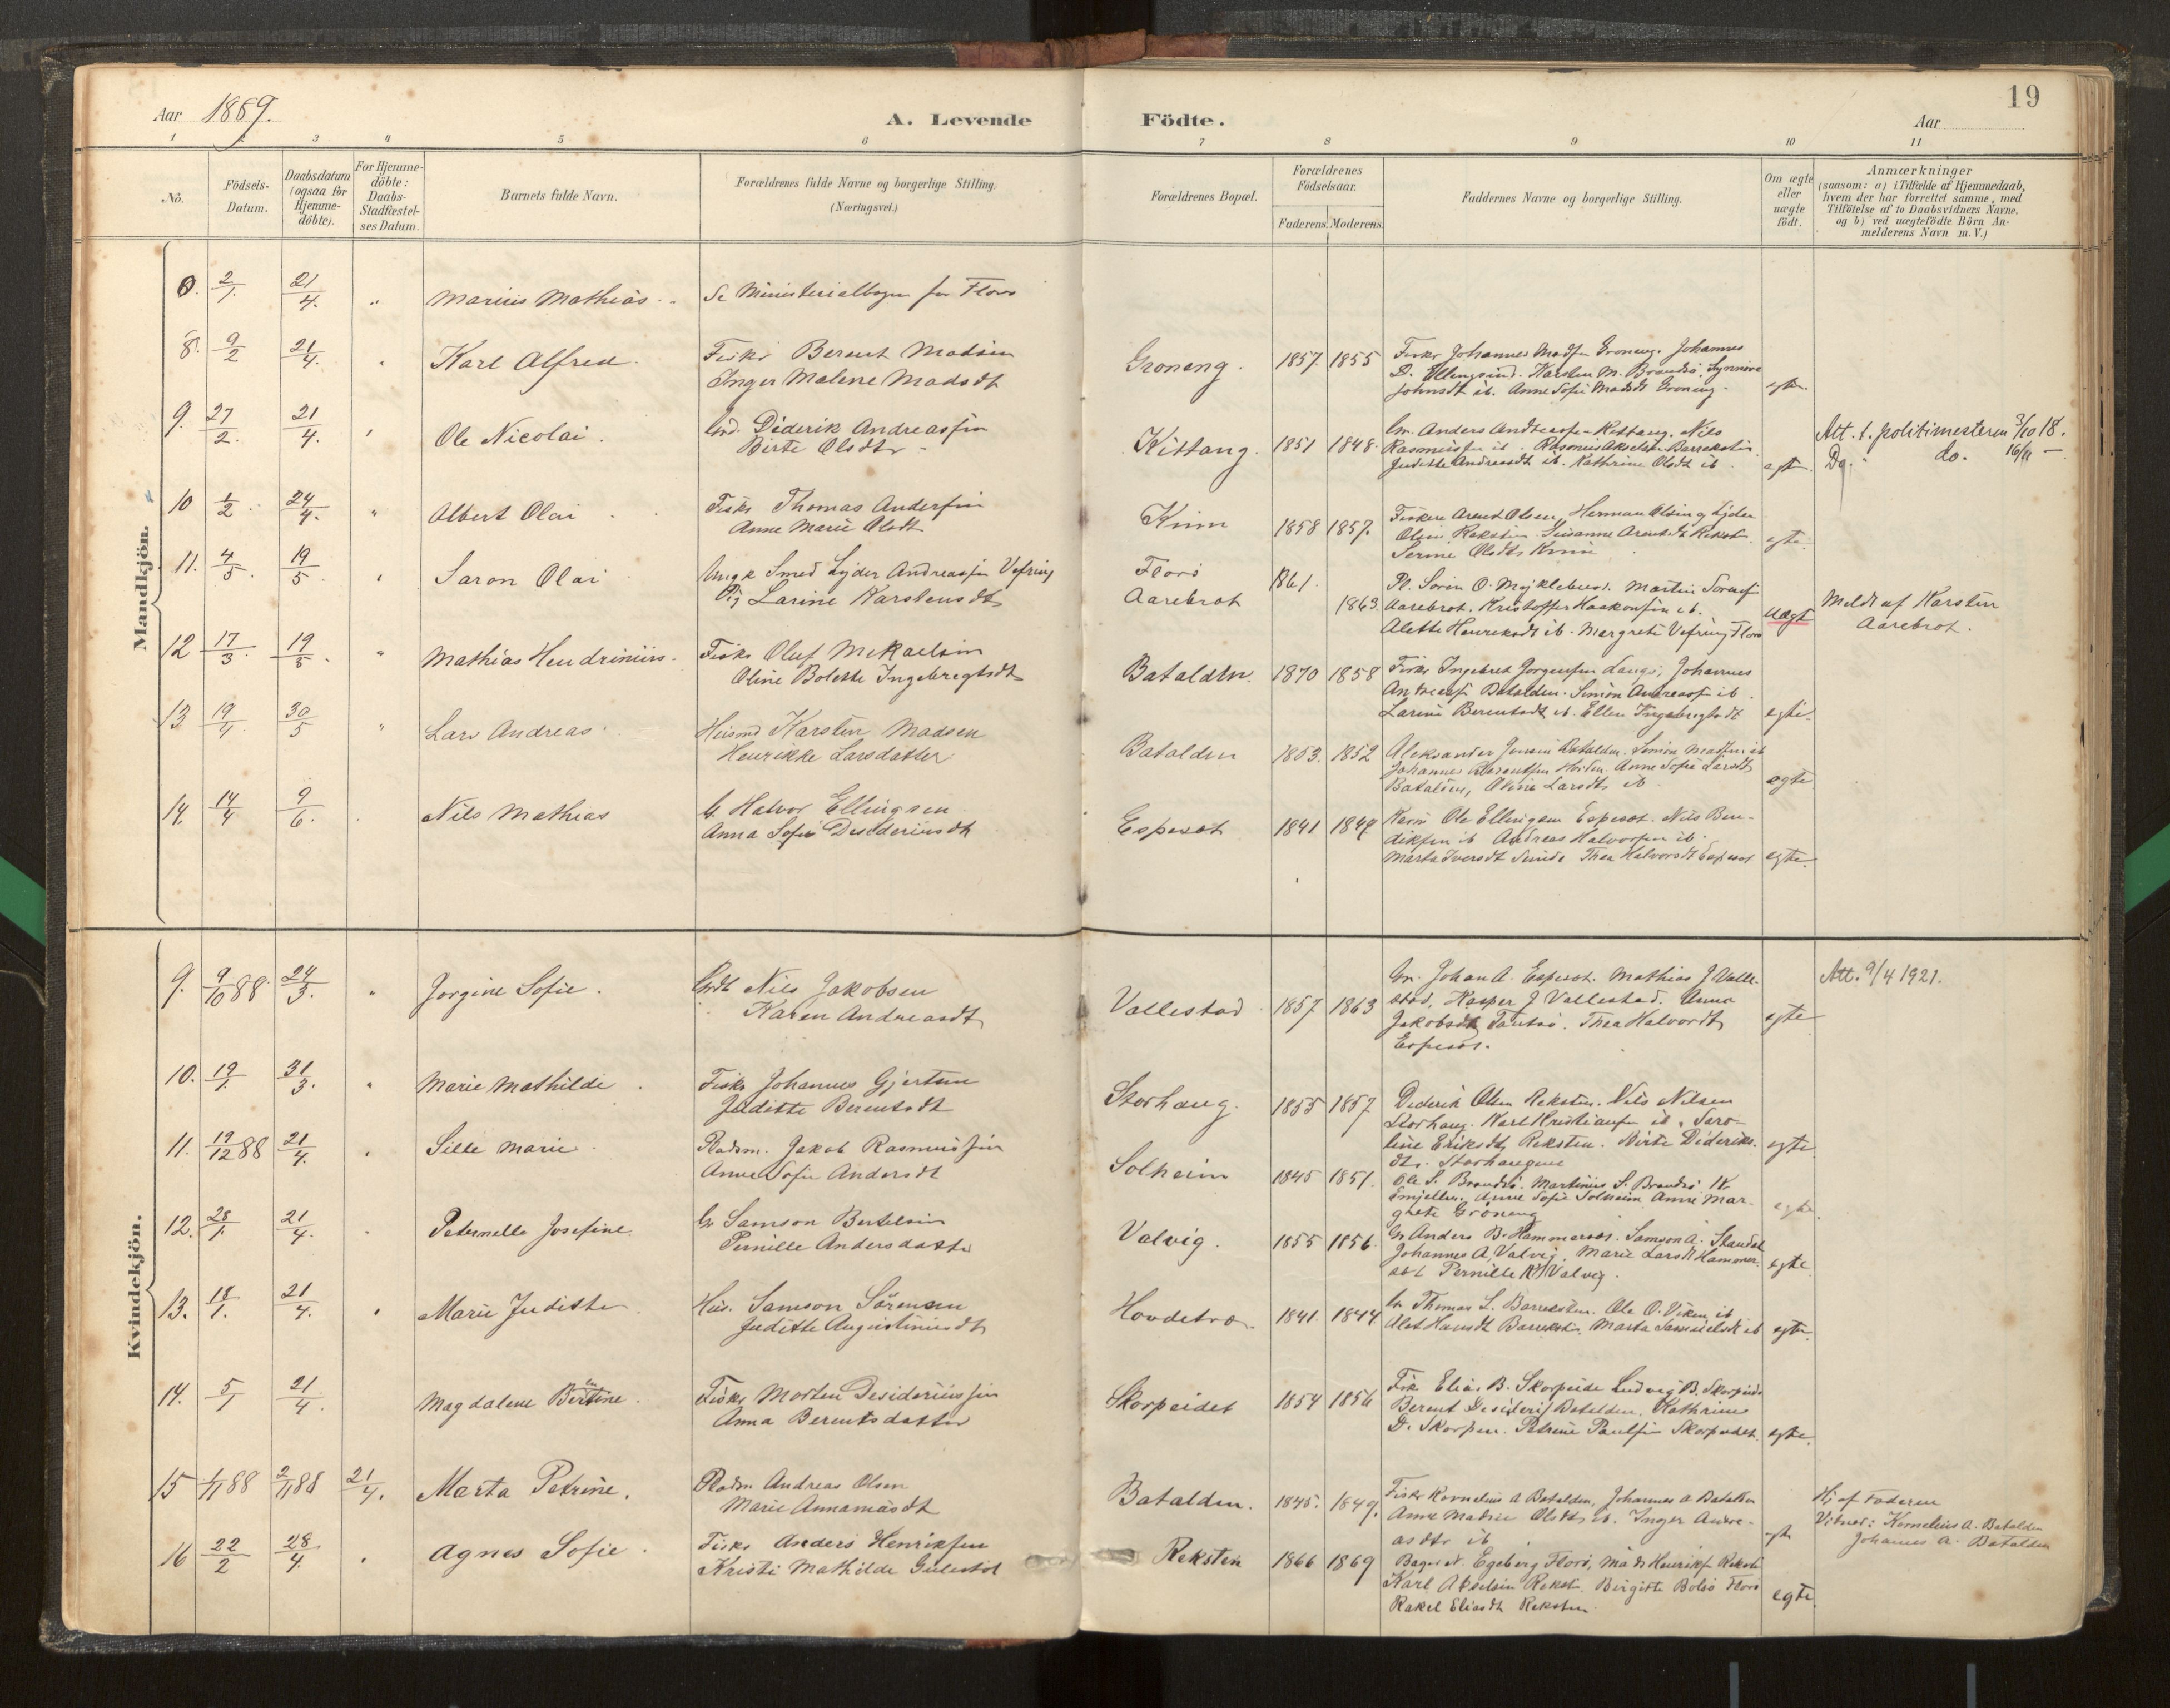 19
Aar 1889.
A. Levende Födte.
Aar
1 2 3 4 5 6 7 8 9 10 11
No.
Födsels-
Datum.
Daabsdatum
(ogsaa for
Hjemme-
döbte).
For Hjemme-
döbte:
Daabs-
Stadfæstel-
ses Datum.
Barnets fulde Navn.
Forældrenes fulde Navne og borgerlige Stilling.
(Næringsvei.)
Forældrenes Bopæl.
Forældrenes
Födselsaar.
Faderens. Moderens.
Faddernes Navne og borgerlige Stilling.
Om ægte
eller
uægte
födt.
Anmærkninger
(saasom: a) i Tilfælde af Hjemmedaab,
hvem der har forrettet samme, med
Tilföielse af to Daabsvidners Navne,
og b) ved uægtefödte Börn An-
melderens Navn m. V.)
Mandkjön.
0. 2/1. 21/4. " Marius Mathias. Se Ministerialbogen for Florø
8. 9/2 21/4. " Karl Alfred. Fisker Berent Madsen
Inger Malene Madsdt
Groneng. 1857. 1855
Fisker Johannes Madsen Groneng. Johannes
D. Ellingsund. Karsten M. Brandsø. Synnøve
Johnsdt ib. Anne Sofie Madsdt Groneng.
egte.
9. 27/2. 21/4. " Ole Nicolai. Diderik Andreassen
Birte Olsdtr
Kittang. 1851 1848.
Gr. Anders Andreassen Kittang. Nils
Rasmussen ib. Rasmus Akselsen Barreksten
Juditte Andreasdt ib. Kathrine Olsdt ib
egte.
Att. t. politimesteren 3/10 18.
Do. do. 16/11 —
10 1/2 24/4. " Albert Olai Fisker Thomas Andersen
Anne Marie Olsdt
Kinn 1858 1857.
Fiskere Arent Olsen, Herman Olsen og Lyder
Olsen Reksten. Susanne Arentsdt Rekst.
Serine Olsdtr Kinn
egte.
11. 4/5. 19/5. " Saron Olai Ungk Smed Lyder Andreassen Vefring
Pig Larine Karstensdt
Florø
Aarebrot
1861. 1863.
Pl. Søren O. Myklebust. Martin Sørensf
Aarebrot. Kristoffer Haakonsen ib.
Alette Henriksdt ib. Margrete Vefring Florø
uægt
Meldt af Karsten
Aarebrot.
12 17/3. 19/5. " Mathias Hendrinius. Fisker Oluf Mikaelsen
Oline Bolette Ingebregtsdt
Batalden. 1870 1858
Fisker Ingebret Jørgensen Langø, Johannes
Andreasf Batalden. Simon Andreasf ib.
Larine Berentsdt ib. Ellen Ingebregtsdt
egte.
13 19/4 30/5 " Lars Andreas. Huusmd Karsten Madsen
Henrikke Larsdatter
Batalden 1853. 1852
Aleksander Jensen Batalden. Simon Madsen ib
Johannes Berentsen Anne Sofie Larsdt
Batalden, Oline Larsdt ib
egte
14. 14/4 9/6. Nils Mathias G. Halvor Ellingsen
Anna Sofie Desideriusdt
Espeset 1841 1847
Ole Ellingsen Espeset. Nils Ben-
diksen ib Andreas Halvorsen ib.
Marta Iversdt Sunde Thea Halvorsdt Espeset
egte.
Kvindekjön.
9. 9/10 88 24/3. " Jorgine Sofie. Nils Jakobsen
Karen Andreasdt
Vallestad 1857 1863
Gr. Johan A. Espeset. Mathias J Valle-
stad, Kasper J Vallestad. Anna
Jakobsdt Tansø. Thea Halvordt
Espeset.
egte
Att. 9/4 1921.
10. 19/1. 31/3. " Marie Mathilde. Fisker Johannes Gjertsen
Juditte Berentsdt
Storhaug. 1855 1857
Diderik Olsen Reksten. Nils Nilsen
Storhaug. Karl Kristiansen ib. Sero-
line Eriksdt Reksten. Birte Dideriks-
dt. Storhaugene
egte
11. 19/12 88 21/4. " Sille Marie. Pladsm. Jakob Rasmussen
Anne Sofie Andersdt
Solheim 1845 1851.
Ole S. Brandsø. Martinus S. Brandsø K.
Anne Sofie Solheim Anne Mar-
grete Gröneng
egte.
12. 28/1. 21/4. Peternelle Josefine Gr Samson Bertelsen
Pernille Andersdatter
Valvig. 1855 1856.
Gr Anders B. Hammerset. Samson A. Standal
Johannes A. Valvig. Marie Larsdt Hammer-
set Pernille Valvig.
egte
13. 18/1. 21/4. " Marie Juditte Huus. Samson Sörensen
Juditte Augustinusdt
Hovdetræ. 1841. 1844
Gr Thomas L. Barreksten. Ole O. Viken ib
Alet Hansdt Barreksten. Marta Samuelsdt ib
egte.
14. 5/1 21/4. Magdalene Bertine. Fisker Morten Desideriussen
Anna Berentsdatter
Skorpeidet 1854 1856
Fisk. Elias B. Skorpeide Ludvig B. Skorpeide
Berent Desiderif Batalden. Kathrine
D. Skorpen. Petrine Paulsen Skorpeidet.
egte.
15 1/11 88 2/11 88 21/4. Marta Petrine. Pladsm Andreas Olsen
Marie Annanias dt
Batalden. 1845. 1849.
Fisker Kornelius A Batalden, Johannes A Batalden
Anne Madsdtr Olsdt ib. Inger Andre-
asdtr ib
egte
Hj. af Faderen
Vidner: Kornelius A. Batalden
Johannes A. Batalden
16 22/2 28/4. " Agnes Sofie. Fisker Anders Henriksen
Kristi Mathilde Gulestöl
Reksten 1866 1869
Bager N. Egeberg Florø, Mads Henriksf Reksten
Karl Akselsen Reksten. Birgitte Bolsø Florø
Rakel Eliasdt Reksten.
egte.